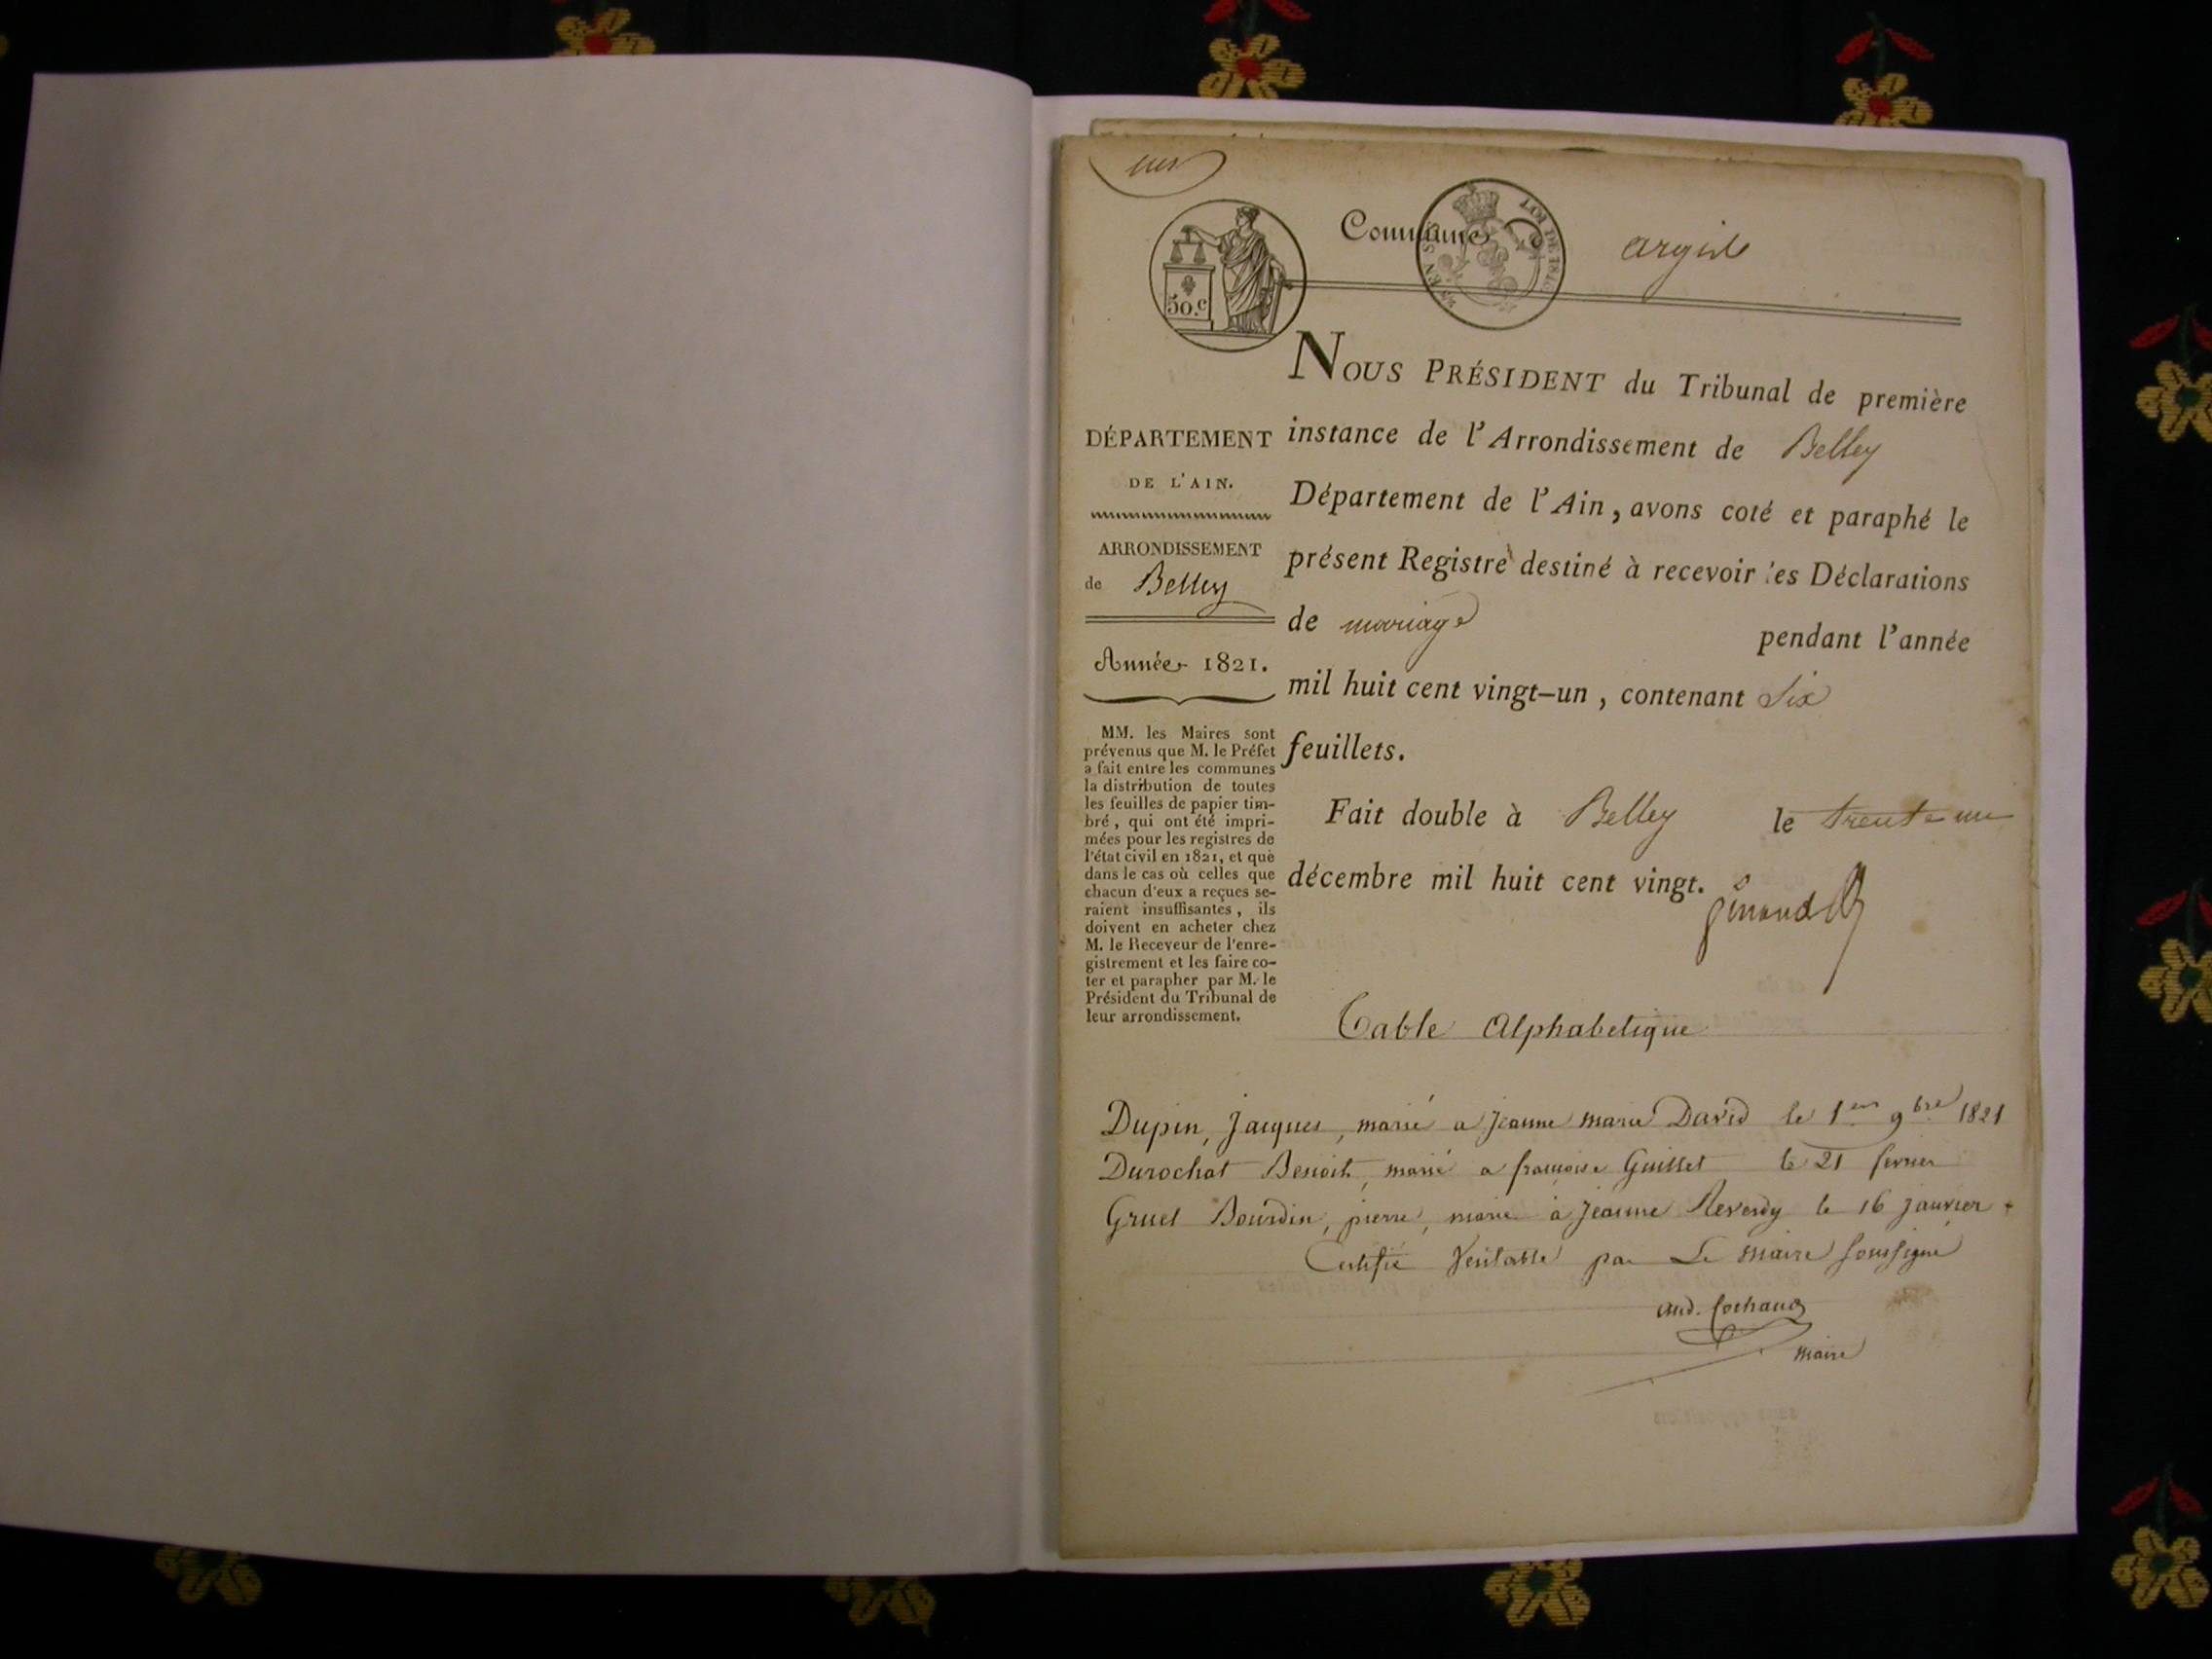 Commune
argis
50.c
LOI DE 1816
NOUS PRÉSIDENT du Tribunal de première
instance de l'Arrondissement de Belley
Département de l'Ain, avons coté et paraphé le
présent Registre destiné à recevoir les Déclarations
de mariage pendant l'année
mil huit cent vingt-un, contenant Six
feuillets.
Fait double à Belley le trente un
décembre mil huit cent vingt.
DÉPARTEMENT
DE L'AIN.
ARRONDISSEMENT
de Belley
Année 1821.
MM. les Maires sont
prévenus que M. le Préfet
a fait entre les communes
la distribution de toutes
les feuilles de papier tim-
bré, qui ont été impri-
mées pour les registres de
l'état civil en 1821, et que
dans le cas où celles que
chacun d'eux a reçues se-
raient insuffisantes, ils
doivent en acheter chez
M. le Receveur de l'enre-
gistrement et les faire co-
ter et parapher par M. le
Président du Tribunal de
leur arrondissement.
Table Alphabetique
Dupin, Jacques, marié a Jeanne marie David le 1er 9bre 1821
Durochat Benoit, marié a françoise Guillet le 21 fevrier
Gruel Bourdin, pierre, marié à Jeanne Reverdy le 16 janvier
Certifié Veritable par Le Maire soussigné
maire